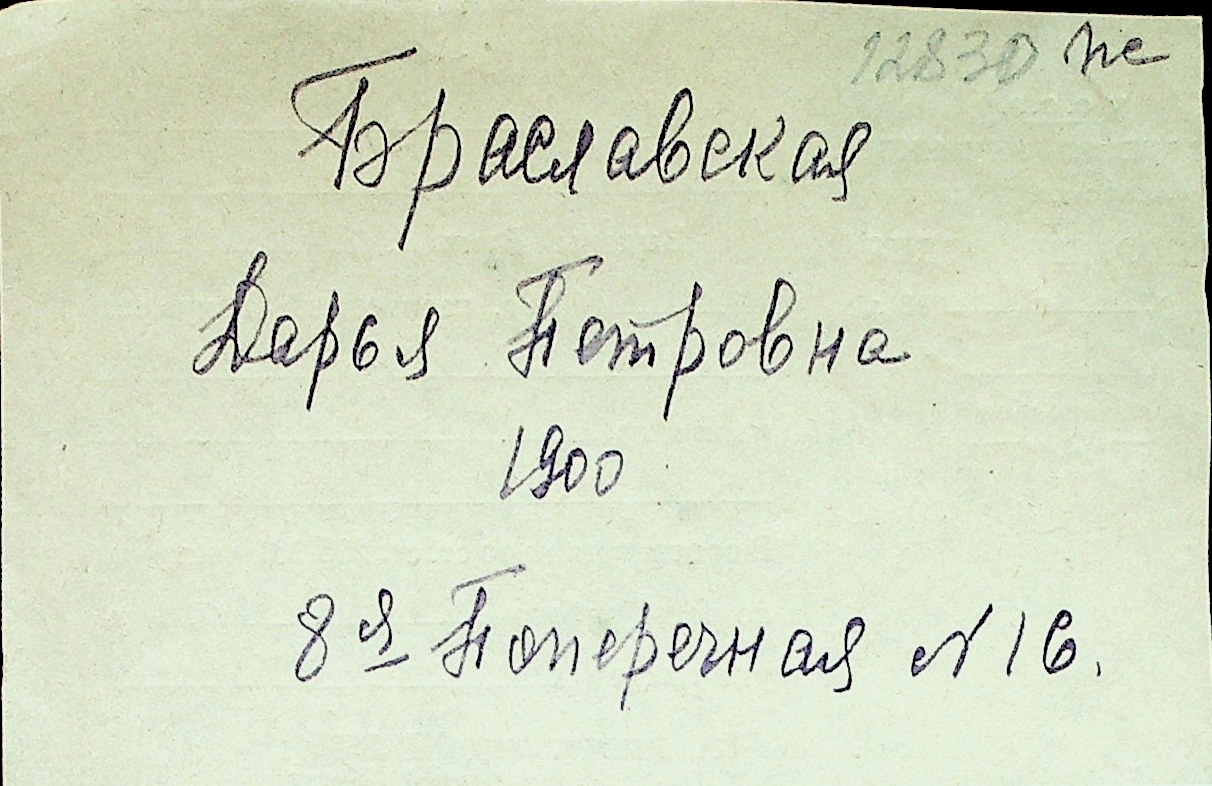 12830
Браславская
Дарья Петровна
1900
8я Поперечная № 16.